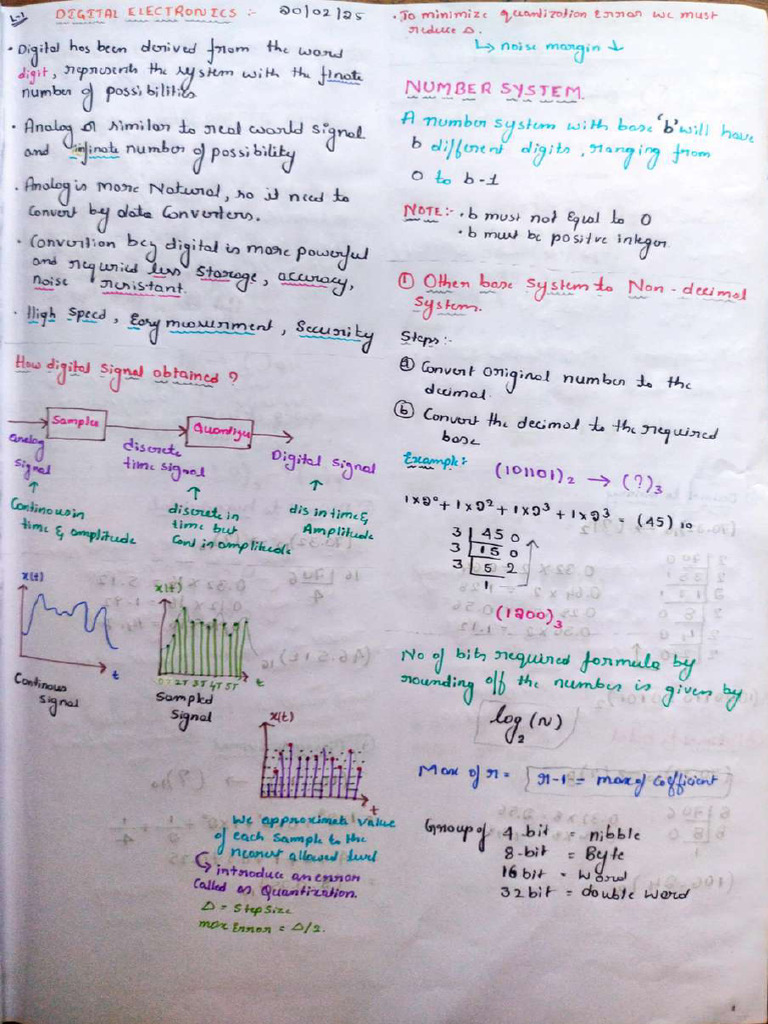 L-1
DIGITAL ELECTRONICS :- 20/02/25
• Digital has been derived from the word
digit, represents the system with the finate
number of possibilities
• Analog is similar to real world signal
and infinate number of possibility
• Analog is more Natural, so it need to
Convert by data Converters.
• Convertion bcy digital is more powerful
and required less storage, accuracy,
noise resistant.
• High Speed, Easy measurment, Security
How digital signal obtained ?
Sampler
Quantizer
analog
signal
discrete
time signal
Digital signal
↑
Continous in
time & amplitude
↑
discrete in
time but
Cont in amplitude
↑
dis in time &
Amplitude
x(t)
t
Continous
signal
x(t)
2T 3T 4T 5T t
Sampled
signal
x(t)
t
We approximate value
of each sample to the
nearest allowed level
↳ introduce an error
called as Quantization.
Δ = Step Size
max Error = Δ/2.
• To minimize quantization Error we must
reduce Δ.
↳ noise margin ↓
NUMBER SYSTEM.
A number system with base 'b' will have
b different digits, ranging from
0 to b-1
NOTE:- • b must not Equal to 0
• b must be positve integer
① Other base System to Non-decimal
system.
Steps :-
ⓐ Convert original number to the
decimal.
ⓑ Convert the decimal to the required
base
Example:-
(101101)₂ → (?)₃
1×2⁰ + 1×2² + 1×2³ + 1×2³ = (45)₁₀
3 | 45 0
3 | 15 0
3 | 5 2
1
(1200)₃
No of bits required formula by
rounding off the number is given by
log₂(N)
Max of r = r-1 = max of Coefficient
Group of 4 bit = nibble
8-bit = Byte
16 bit = Word
32 bit = double word